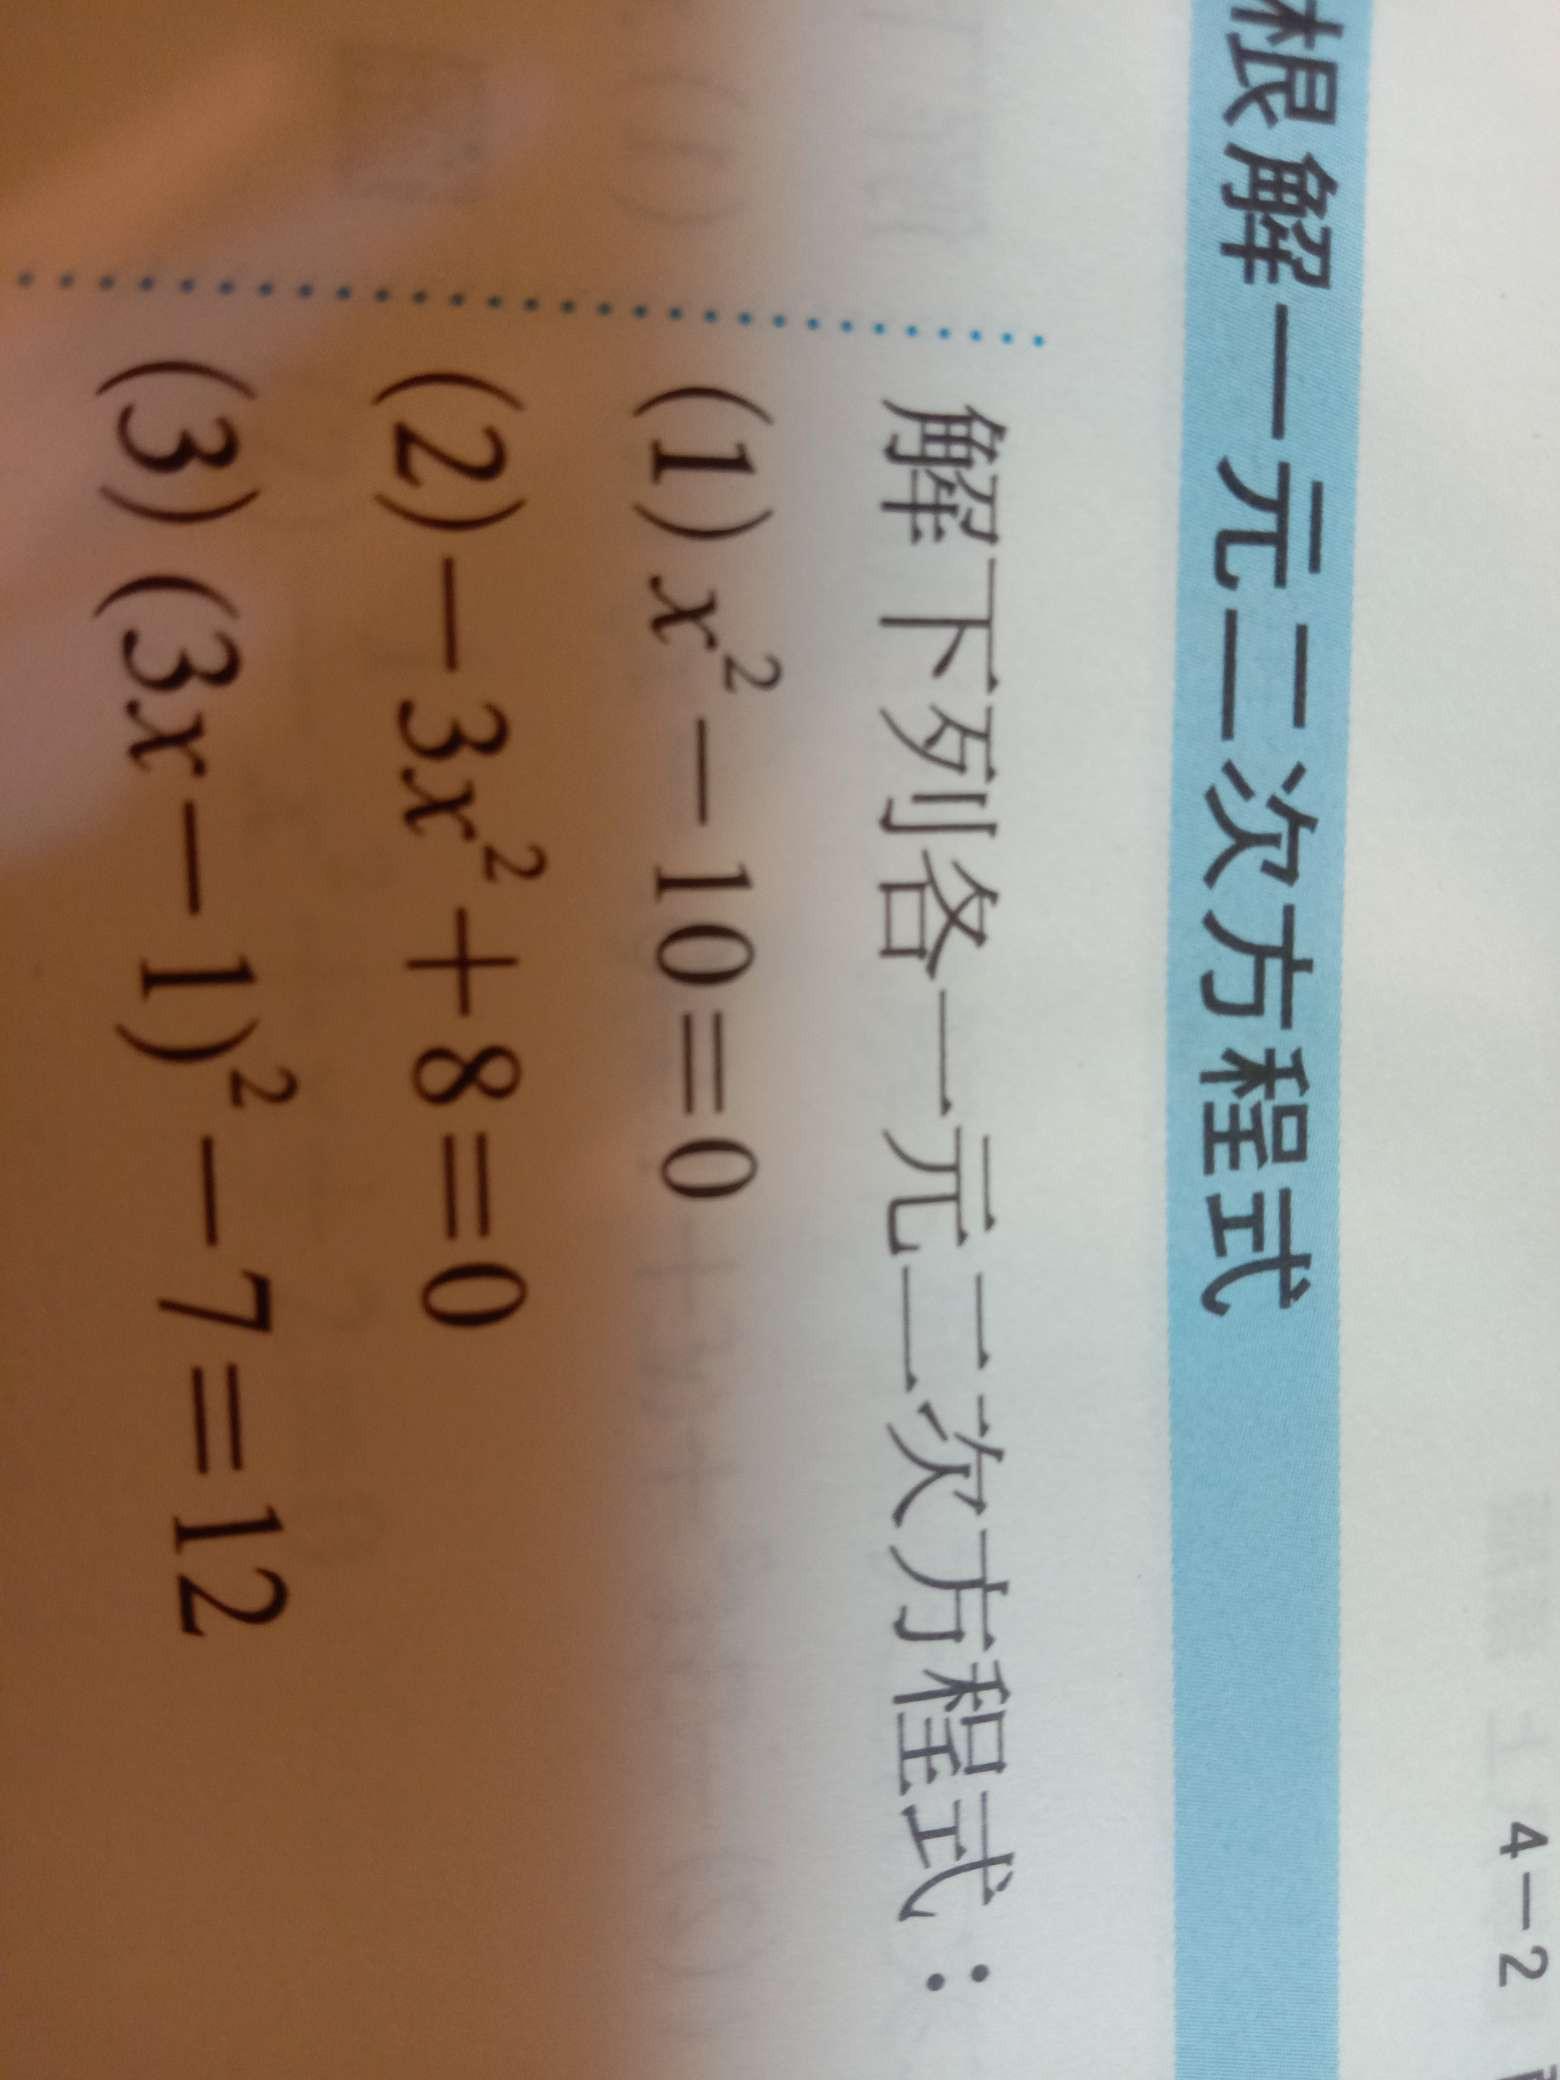 4－2
根解一元二次方程式
解下列各一元二次方程式：
(1) x² － 10 = 0
(2) － 3x² + 8 = 0
(3) (3x － 1)² － 7 = 12